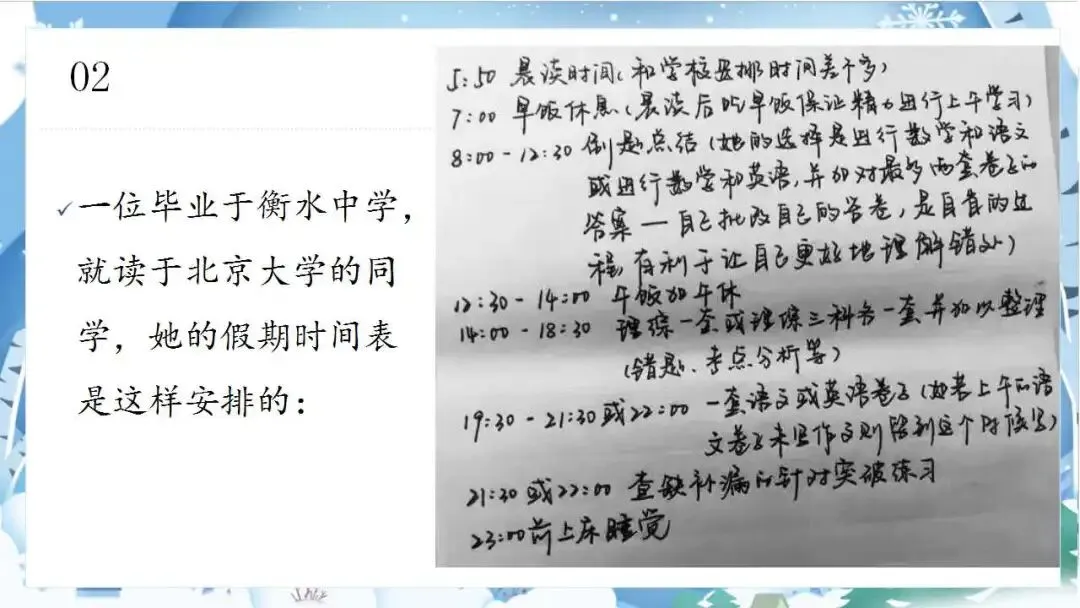 02
一位毕业于衡水中学，
就读于北京大学的同
学，她的假期时间表
是这样安排的：
5:50 晨读时间（和学校安排时间差不多）
7:00 早饭休息（晨读后吃早饭保证精力进行上午学习）
8:00-12:30 刷题总结（她的选择是进行数学和语文
或进行数学和英语，并加对最多两套卷子的
答案—自己批改自己的答卷，是自省的过
程，有利于让自己更好地理解错处）
12:30-14:00 午饭加午休
14:00-18:30 理综一套或理综三科各一套并加以整理
（错题、考点分析等）
19:30-21:30或22:00 一套语文或英语卷子（如若上午的语
文卷子未写作文则留到这个时候写）
21:30或22:00 查缺补漏的针对突破练习
23:00前上床睡觉